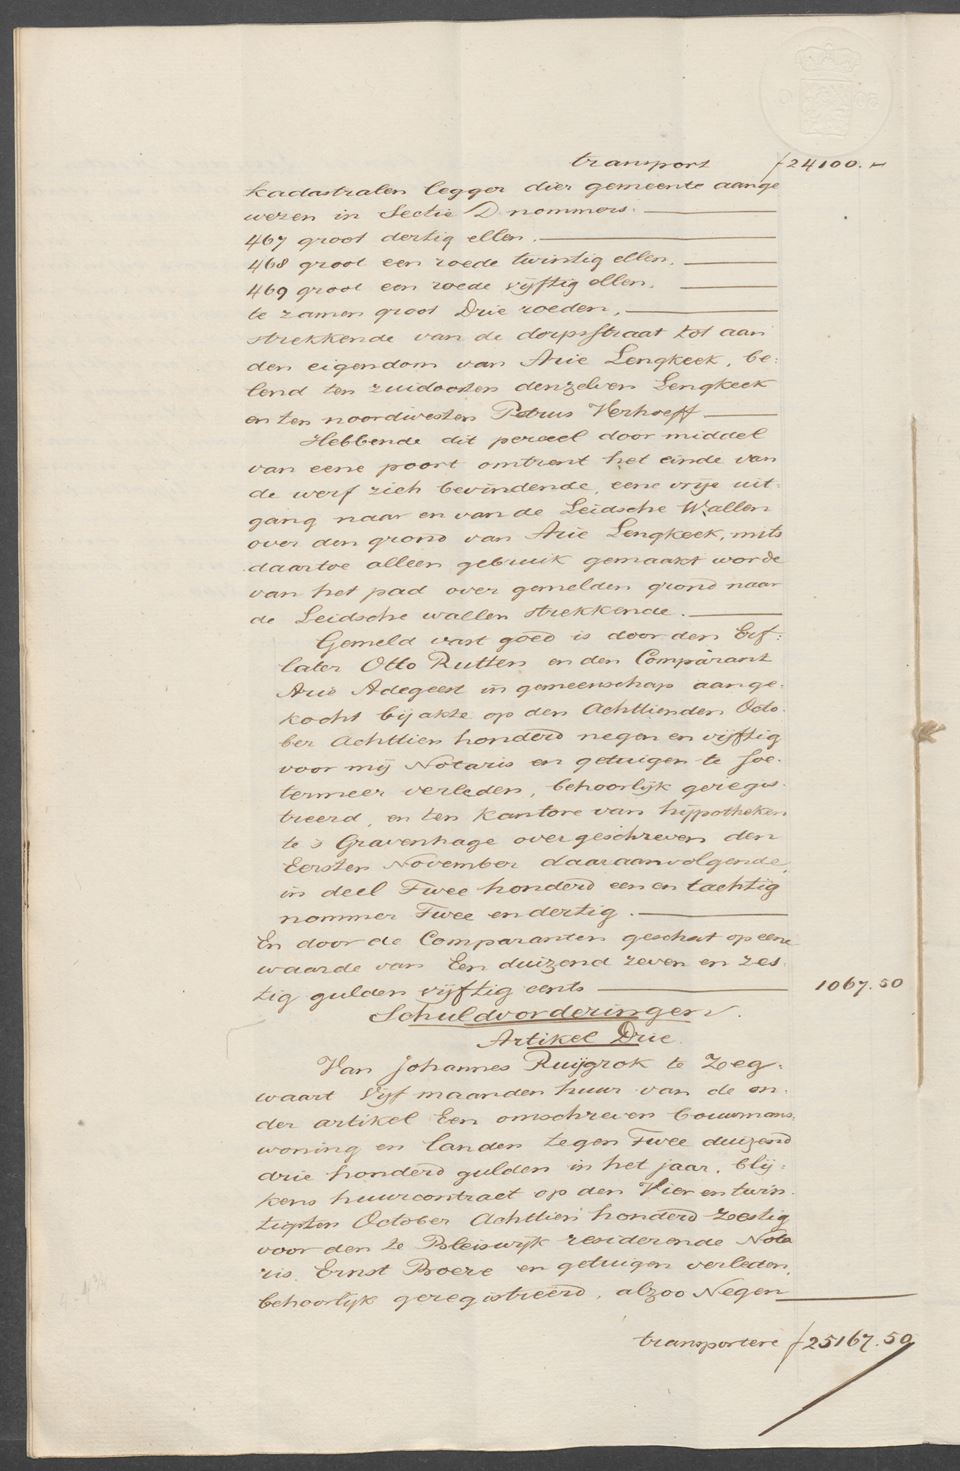 transport ƒ 24100.-
kadastralen legger dier gemeente aange
wezen in Sectie D nommers.
467 groot dertig ellen.
468 groot een roede twintig ellen.
469 groot een roede vijftig ellen.
te zamen groot Drie roeden,
strekkende van de dorpsstraat tot aan
den eigendom van Arie Lengkeek, be:
lend ten zuidoosten denzelven Lengkeek
en ten noordwesten Petrus Verhoeff
Hebbende dit perceel door middel
van eene poort omtrent het einde van
de werf zich bevindende, eene vrije uit:
gang naar en van de Leidsche Wallen
over den grond van Arie Lengkeek, mits
daartoe alleen gebruik gemaakt worde
van het pad over gemelden grond naar
de Leidsche wallen strekkende.
Gemeld vast goed is door den Erf:
later Otto Rutten en den Comparant
Arie Adegeest in gemeenschap aange:
kocht bij akte op den Achttienden Octo:
ber Achttien honderd negen en vijftig
voor mij Notaris en getuigen te Soe:
termeer verleden, behoorlijk geregis:
treerd, en ten kantore van hijpotheken
te s Gravenhage overgeschreven den
Eersten November daaraanvolgende,
in deel Twee honderd een en tachtig
nommer Twee en dertig.
En door de Comparanten geschat op eene
waarde van Een duizend zeven en zes:
tig gulden vijftig cents 1067.50
Schuldvorderingen.
Artikel Drie.
Van Johannes Ruijgrok te Zeg:
waart Vijf maanden huur van de on:
der artikel Een omschreven bouwmans
woning en landen tegen Twee duizend
drie honderd gulden in het jaar, blij:
kens huurcontract op den Vier en twin:
tigsten October Achttien honderd zestig
voor den te Bleiswijk residerende Nota
ris Ernst Broere en getuigen verleden,
behoorlijk geregistreerd, alzoo Negen
transportere ƒ 25167.50